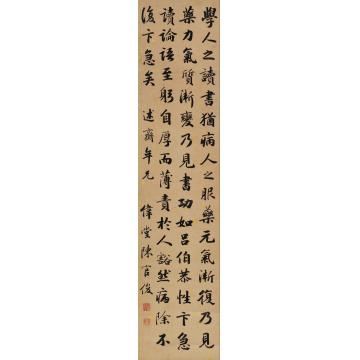 學人之讀書猶病人之服藥元氣漸復乃見
藥力氣質漸變乃見書功如呂伯恭性卞急
讀論語至躬自厚而薄責於人豁然病除不
復卞急矣 述齋年兄 偉堂陳官俊